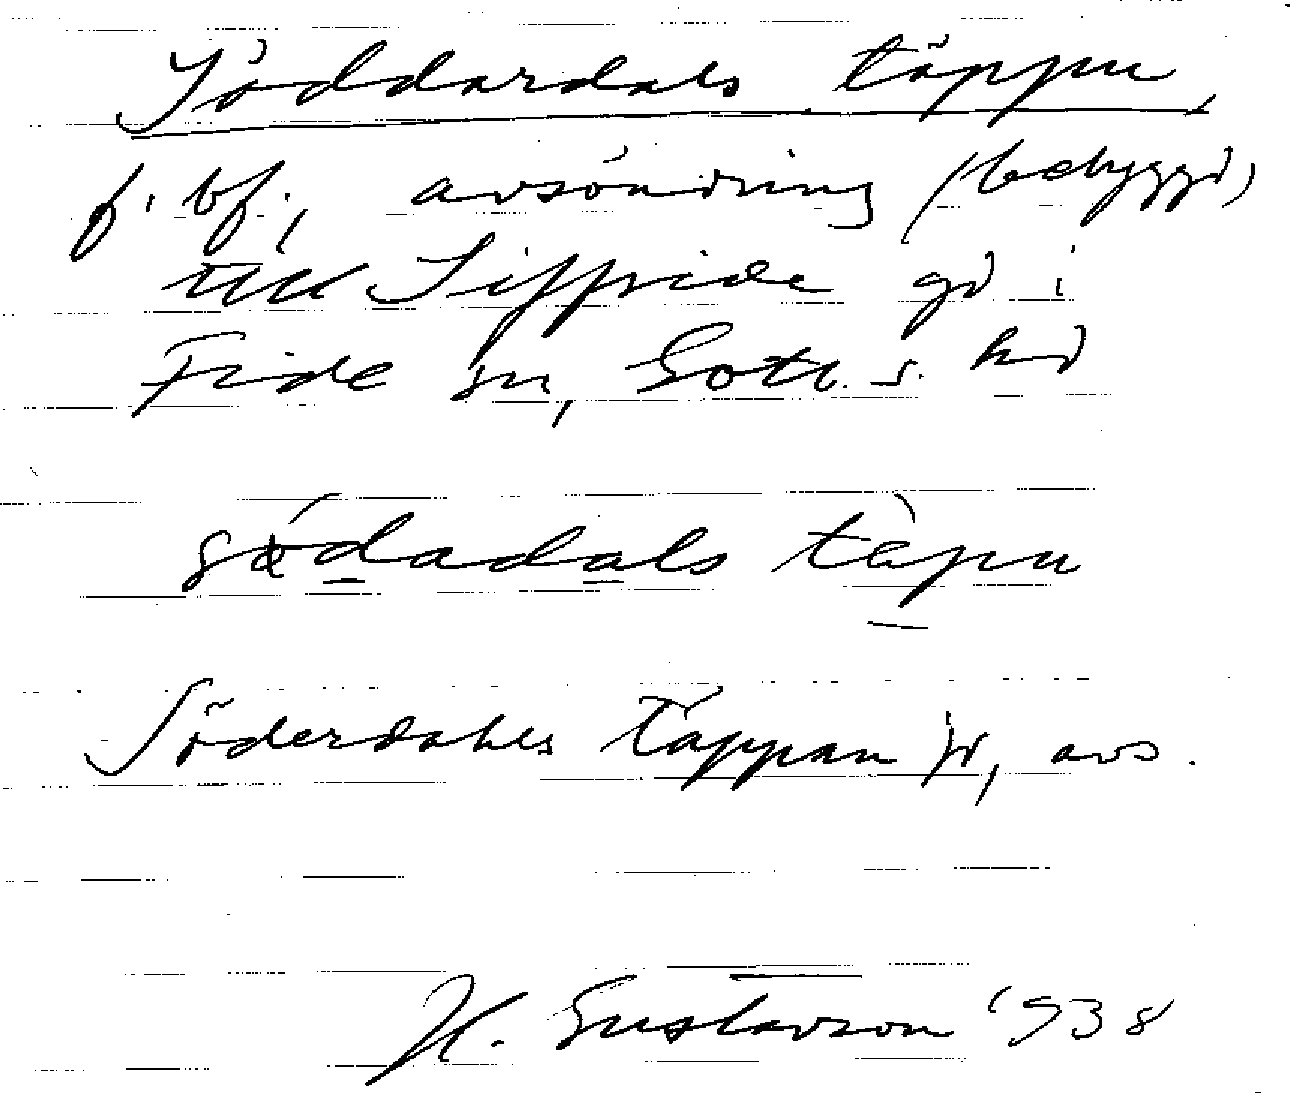 Söddardals täppu,
f. bf., avsöndring (bebyggd)
till Siffride gd i
Fide sn, Gotl. s. hd
södadals täpu
Söderdahls Täppan jr, avs.
H. Gustavson 1938